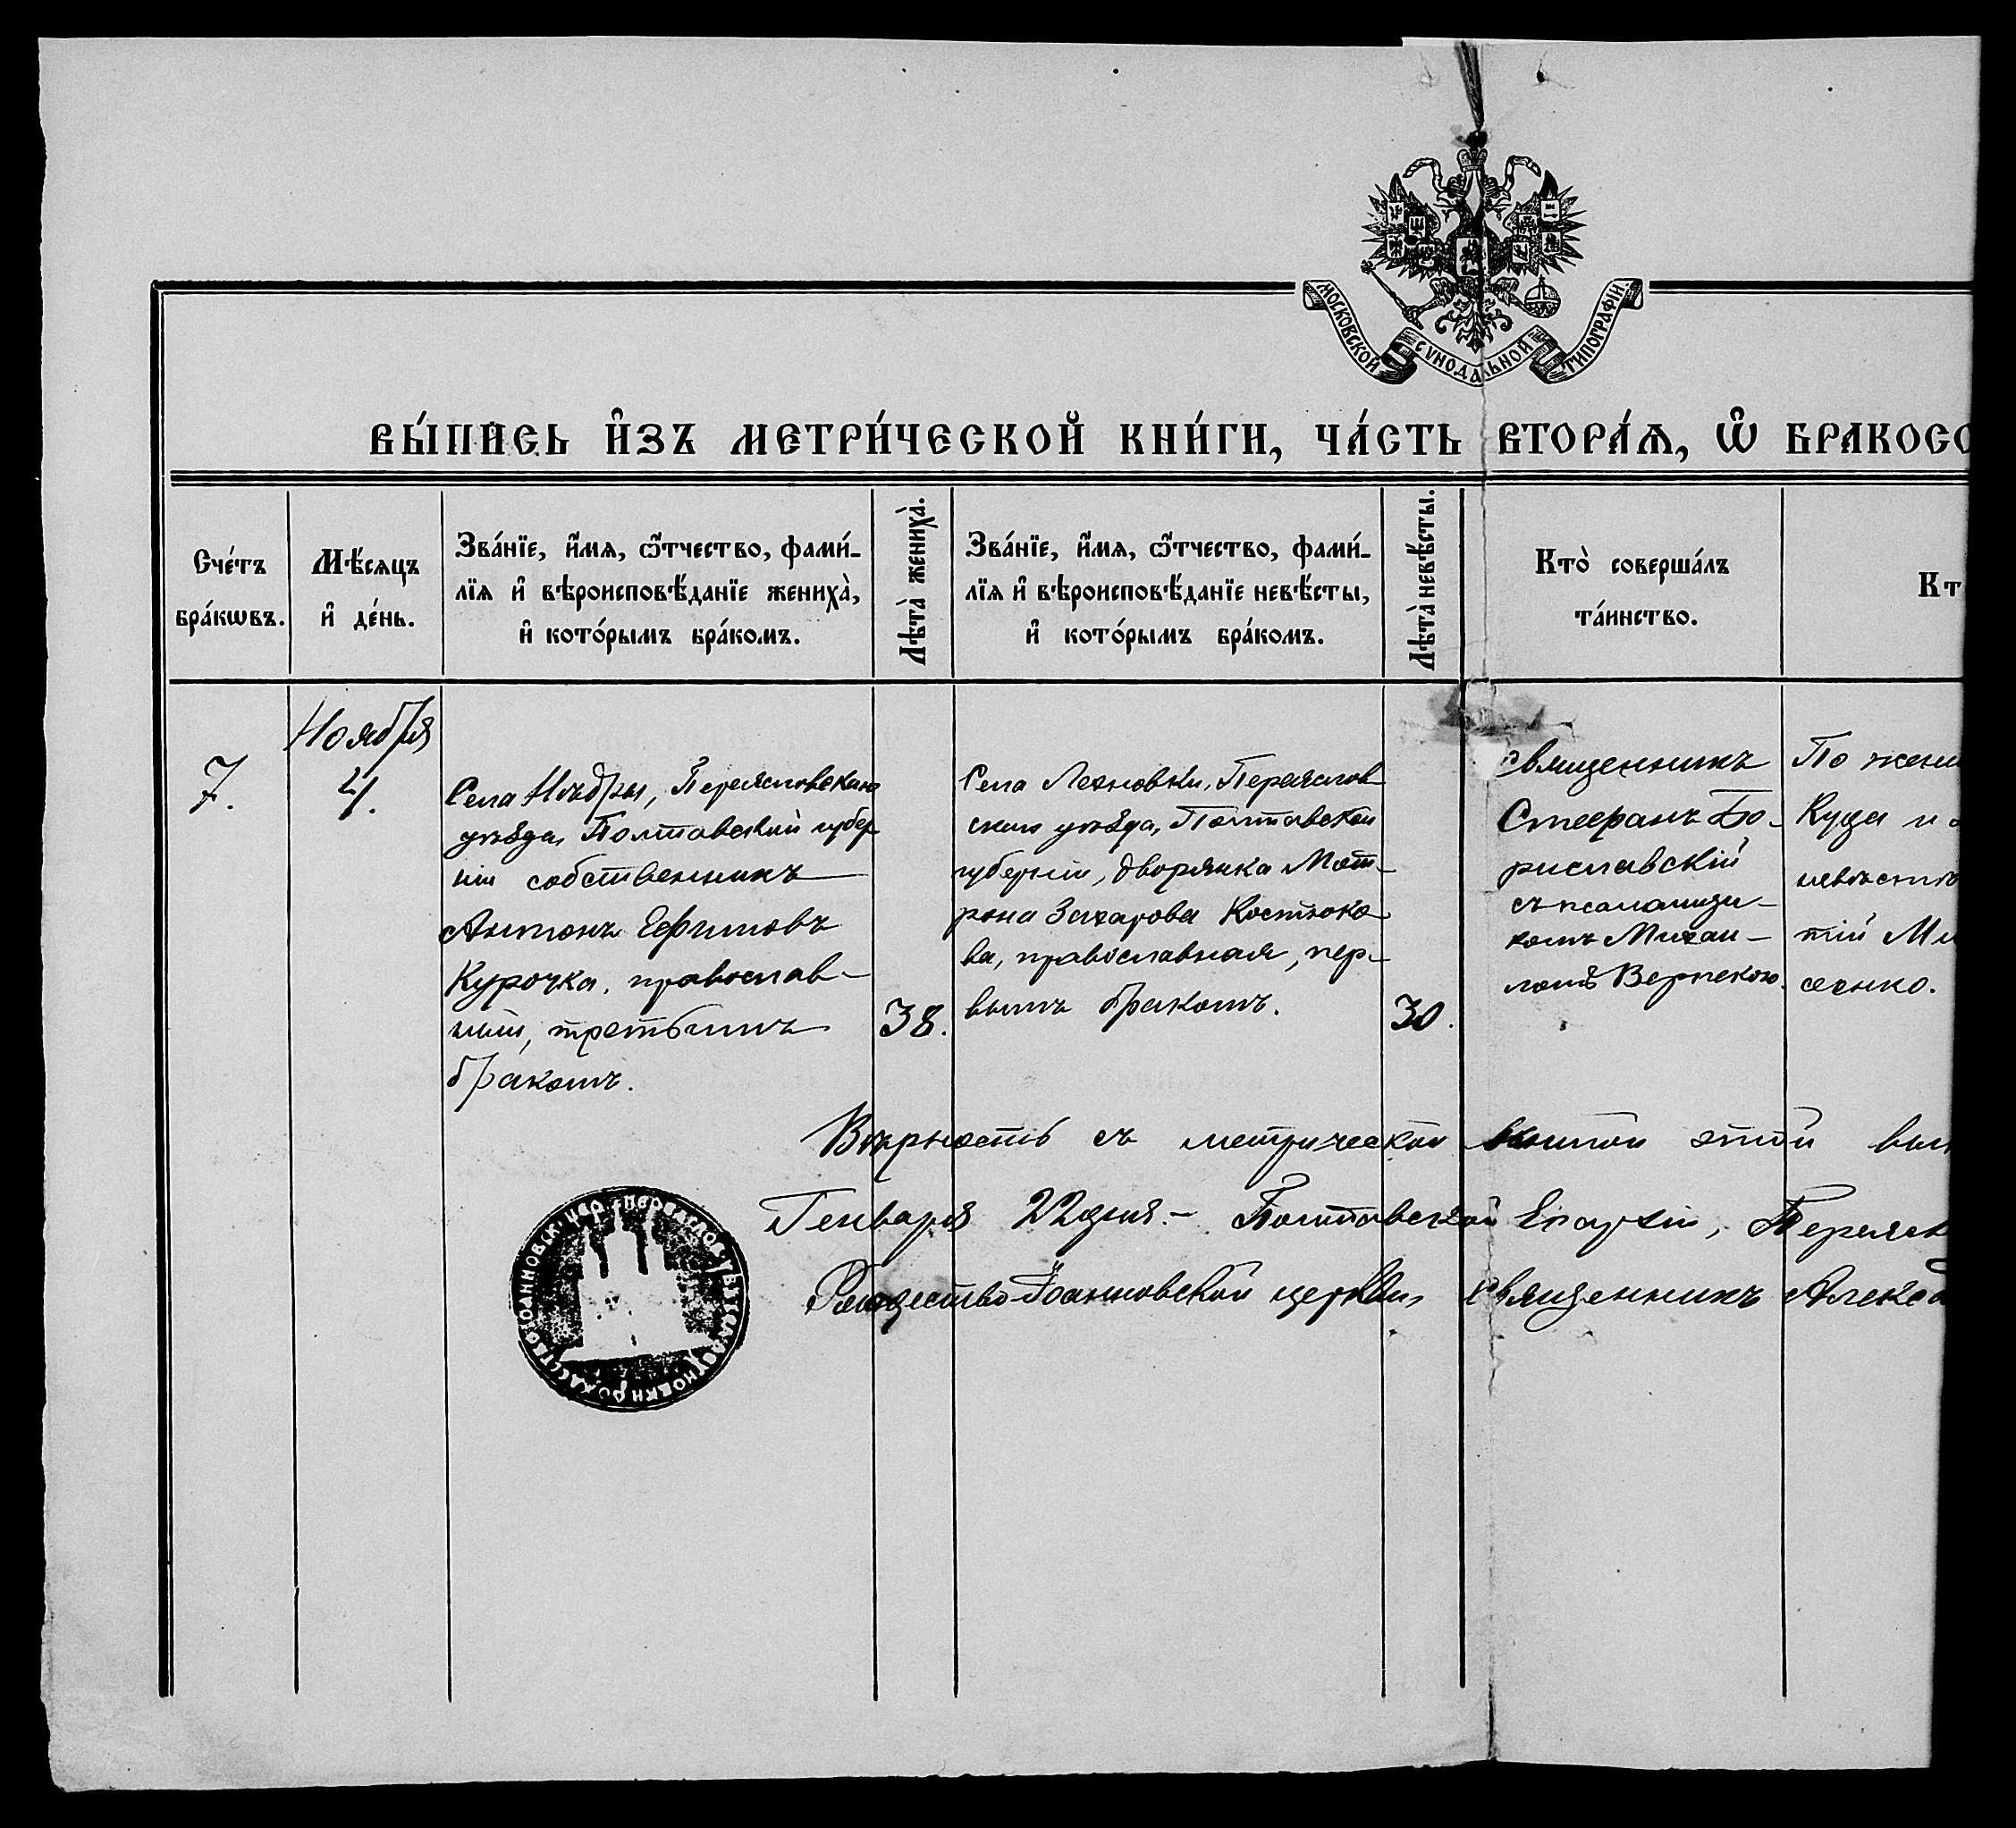 МОСКОВСКОЙ СѴНОДАЛЬНОЙ ТИПОГРАФІИ
ВЫ́ПИСЬ И҆ЗЪ МЕТРИ́ЧЕСКОЙ КНИ́ГИ, ЧА́СТЬ ВТОРА́Ѧ, Ѡ҆ БРАКОСО
Сче́тъ
бра́кѡвъ.
Мѣ́сѧцъ
и҆ де́нь.
Зва́нїе, и҆́мѧ, ѻ҆́тчество, фами́-
лїѧ и҆ вѣроисповѣ́данїе жениха̀,
и҆ кото́рымъ бра́комъ.
Лѣта̀ жениха̀.
Зва́нїе, и҆́мѧ, ѻ҆́тчество, фами́-
лїѧ и҆ вѣроисповѣ́данїе невѣ́сты,
и҆ кото́рымъ бра́комъ.
Лѣта̀ невѣ́сты.
Кто̀ соверша́лъ
та́инство.
Кт
7.
Ноября
4.
Села Недры, Переяславскаго
уѣзда, Полтавской губер
ніи собственникъ
Антонъ Ефимовъ
Курочка, православ-
ный, третьимъ
бракомъ.
38.
Села Лехновки, Переяслав
скаго уѣзда, Полтавской
губерніи, дворянка Мот-
рона Захарова Костюко-
ва, православная, пер-
вымъ бракомъ.
30.
Священникъ
Стефанъ Бо-
риславскій
съ псаломщи-
комъ Михаи-
ломъ
По жени
Куда и
невѣстѣ
тій Ми
сенко.
Вѣрность съ метрической книгой этой вып
Генваря 22 дня.- Полтавской Епархіи, Переясл
Рождество-Іоанновской церкви, священникъ Алекса